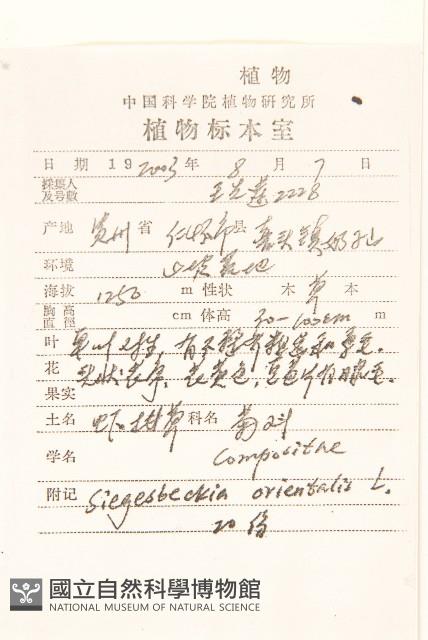 植物
中国科学院植物研究所
植物标本室
日 期 19 2003 年 8 月 7 日
採集人及号数 2228
产地 贵州 省 仁怀市 县
环境 山坡
海拔 1250 m 性状 木 草 本
胸高直徑 cm 体高 30-100cm m
叶 有不整齐
花 头状花序, 花黄色,
果实
土名 草 科名 菊科
学名 Compositae
附记 Siegesbeckia orientalis L.
20 份
國立自然科學博物館
NATIONAL MUSEUM OF NATURAL SCIENCE